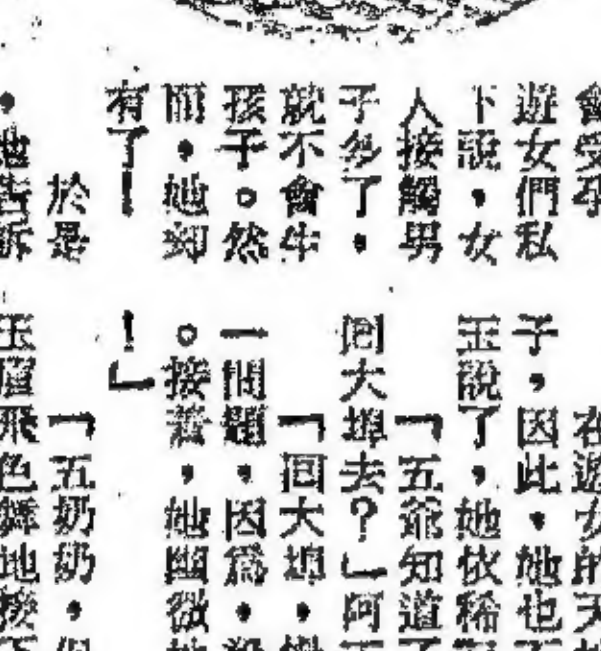 會受孕
遊女們私
下說，女
人接觸男
子多了，
就不會生
孩子。然
而，她却
有了！
於是
，她告訴
在遊女的天
子，因此，她也
玉說了，她依稀
「五爺知道了
回大埠去？」阿
「回大埠，
一問題，因爲，
。接着，她幽微
！」
「五奶奶，
玉眉飛色舞地接下